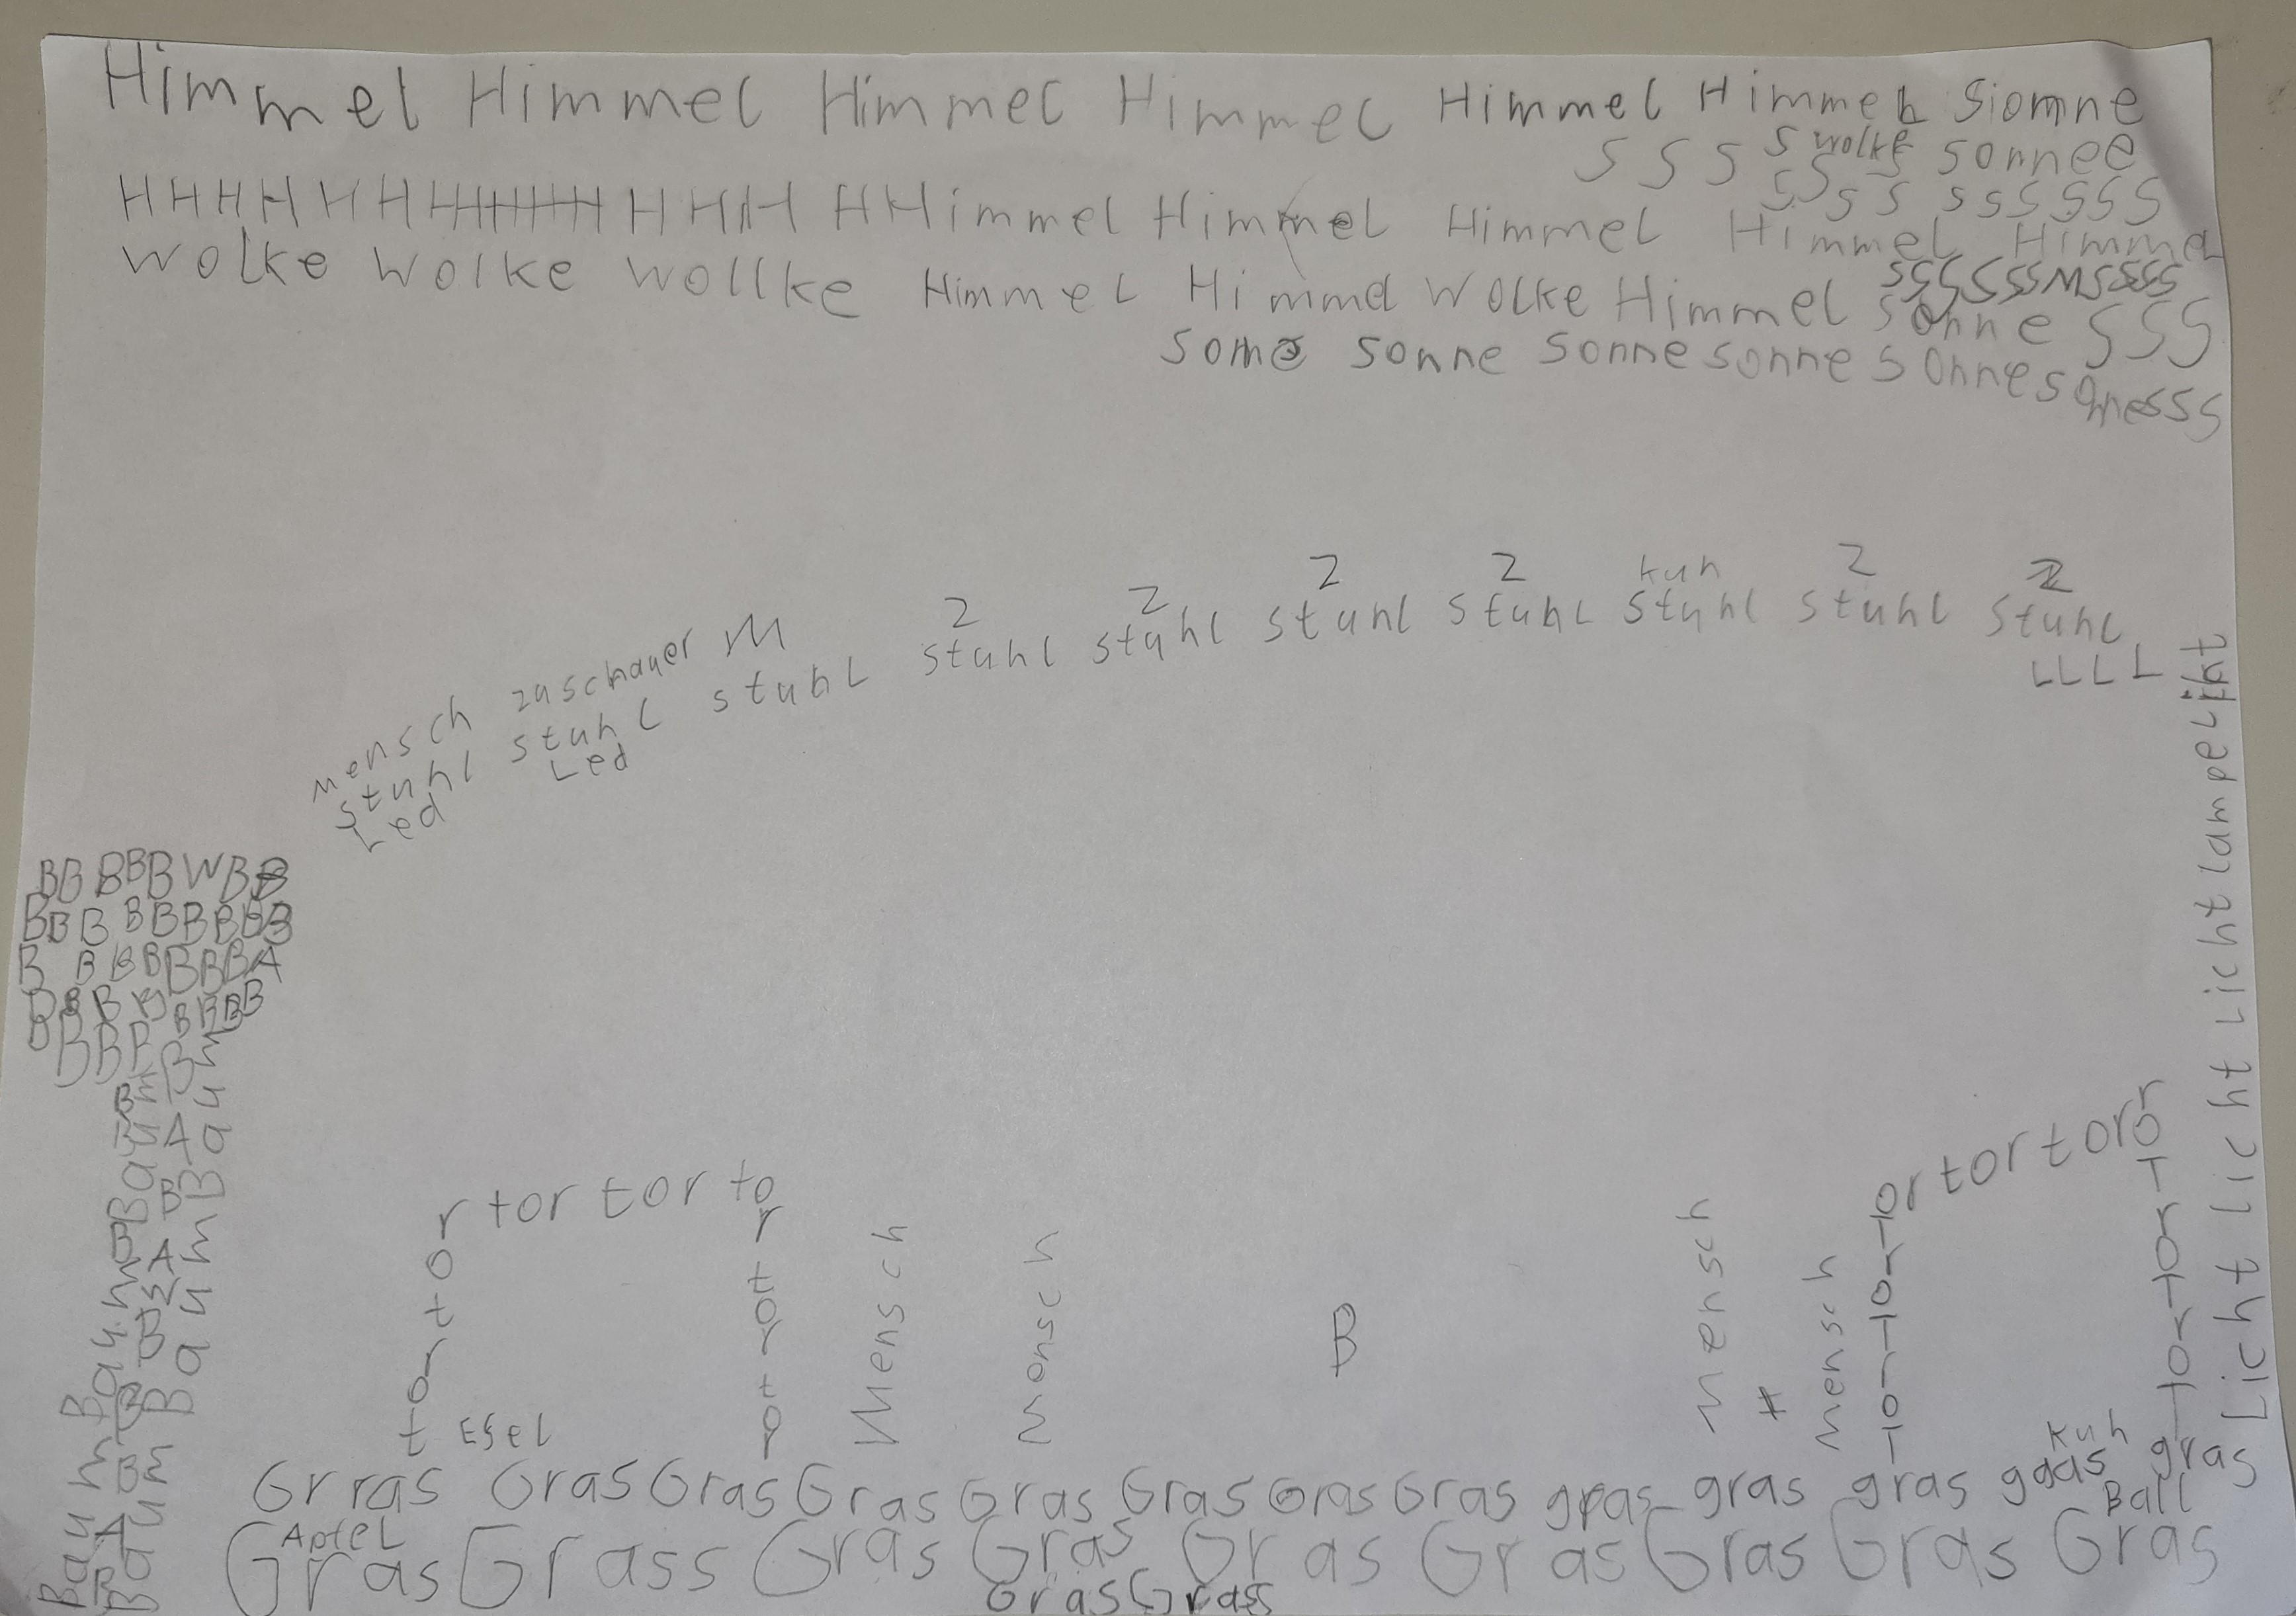 Himmel Himmel Himmel Himmel Himmel Himmel Siomne
S S S S wolke sonnee
S S S S S S S S S S
H H H H H H H H H H H H H H H H H Himmel Himmel Himmel Himmel Himmel
wolke wolke wollke Himmel Himmel wolke Himmel sonne S S S
S S S S S S M S S S S
some sonne sonne sonne sonne sonne s s s
Z Z Z Z kuh Z Z
mensch zuschauer M
stuhl stuhl stuhl stuhl stuhl stuhl stuhl stuhl stuhl stuhl
Led Led
L L L L
Licht Licht Licht Licht lampe Licht
B B B B B W B B
B B B B B B B B B
B B B B B B B A
B B B B B B B B
B B B B B
Baum Baum Baum
Baum Baum Baum
B A B A B B A B
tor tor tor tor tor
tor tor tor
Mensch
Monsch
B
Mensch
t
mensch
tor tor tor tor tor tor
tor tor tor tor
Esel
Kuh
Grras Gras Gras Gras Gras Gras Gras Gras gras gras gras graas gras
Apfel
Ball
Gras Grass Gras Gras Gras Gras Gras Gras Gras
Gras Grass